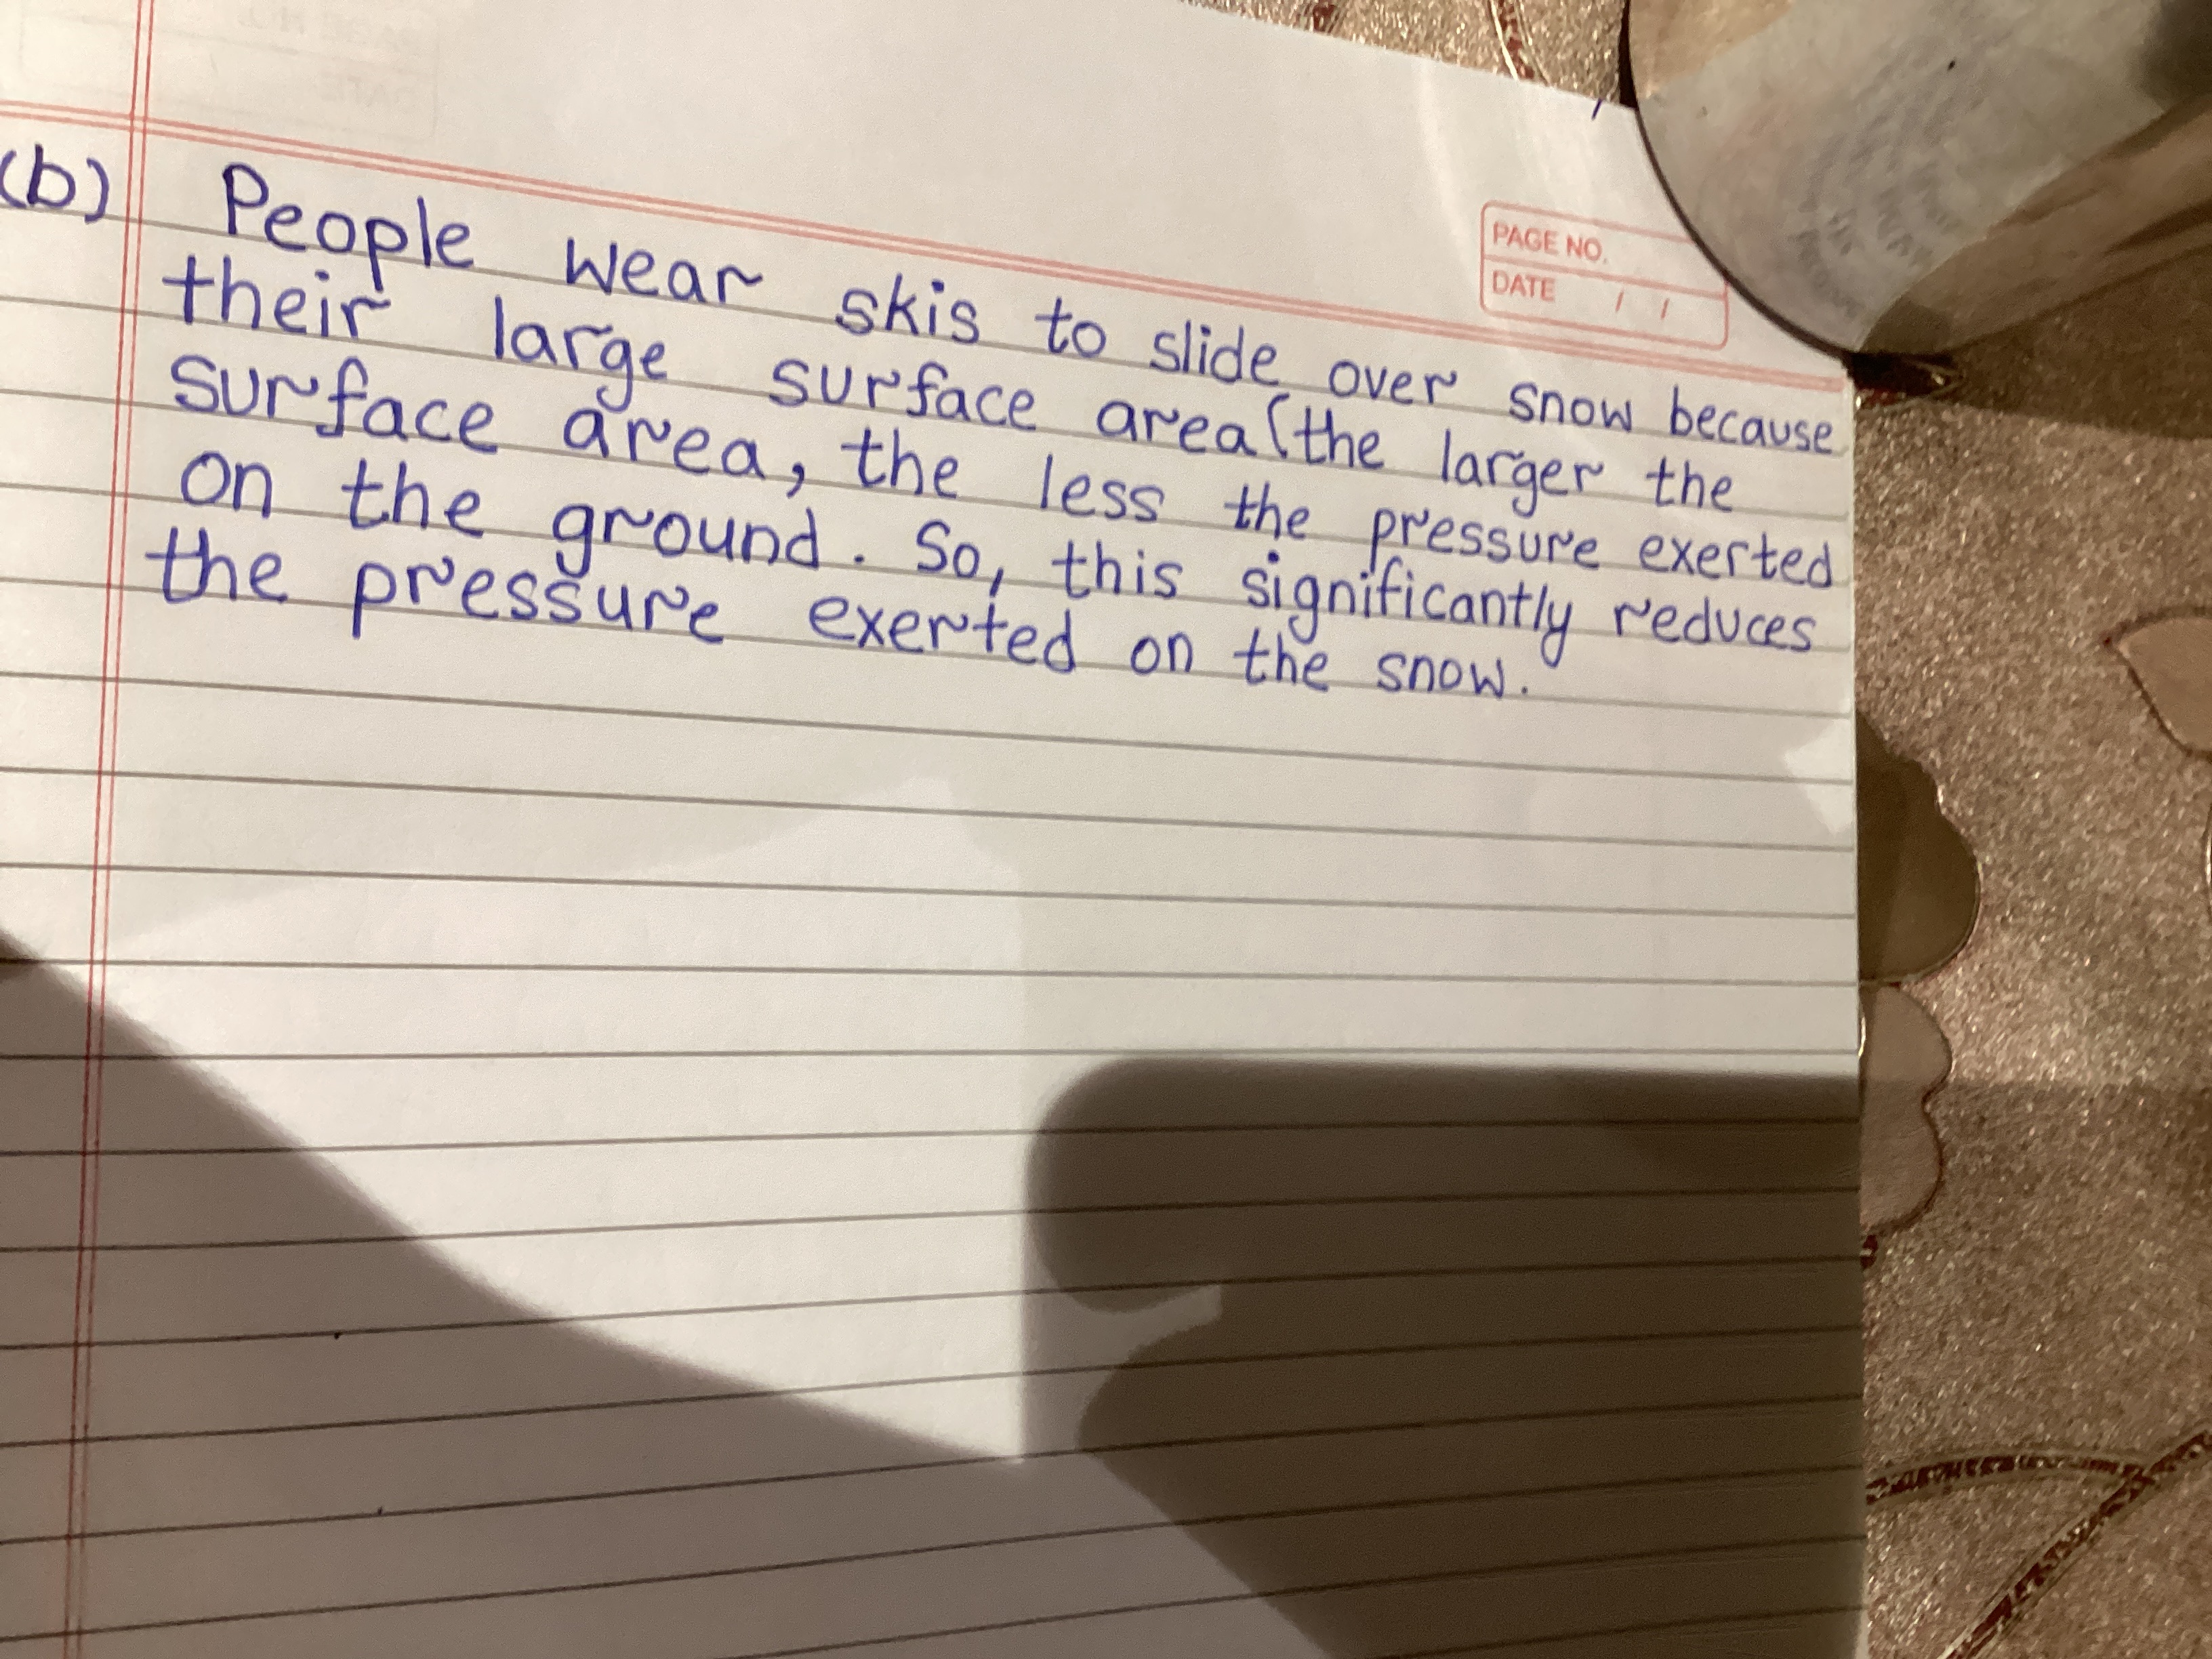 (b) People wear skis to slide over snow because
their large surface area (the larger the
surface area, the less the pressure exerted
on the ground. So, this significantly reduces
the pressure exerted on the snow.
PAGE NO.
DATE / /